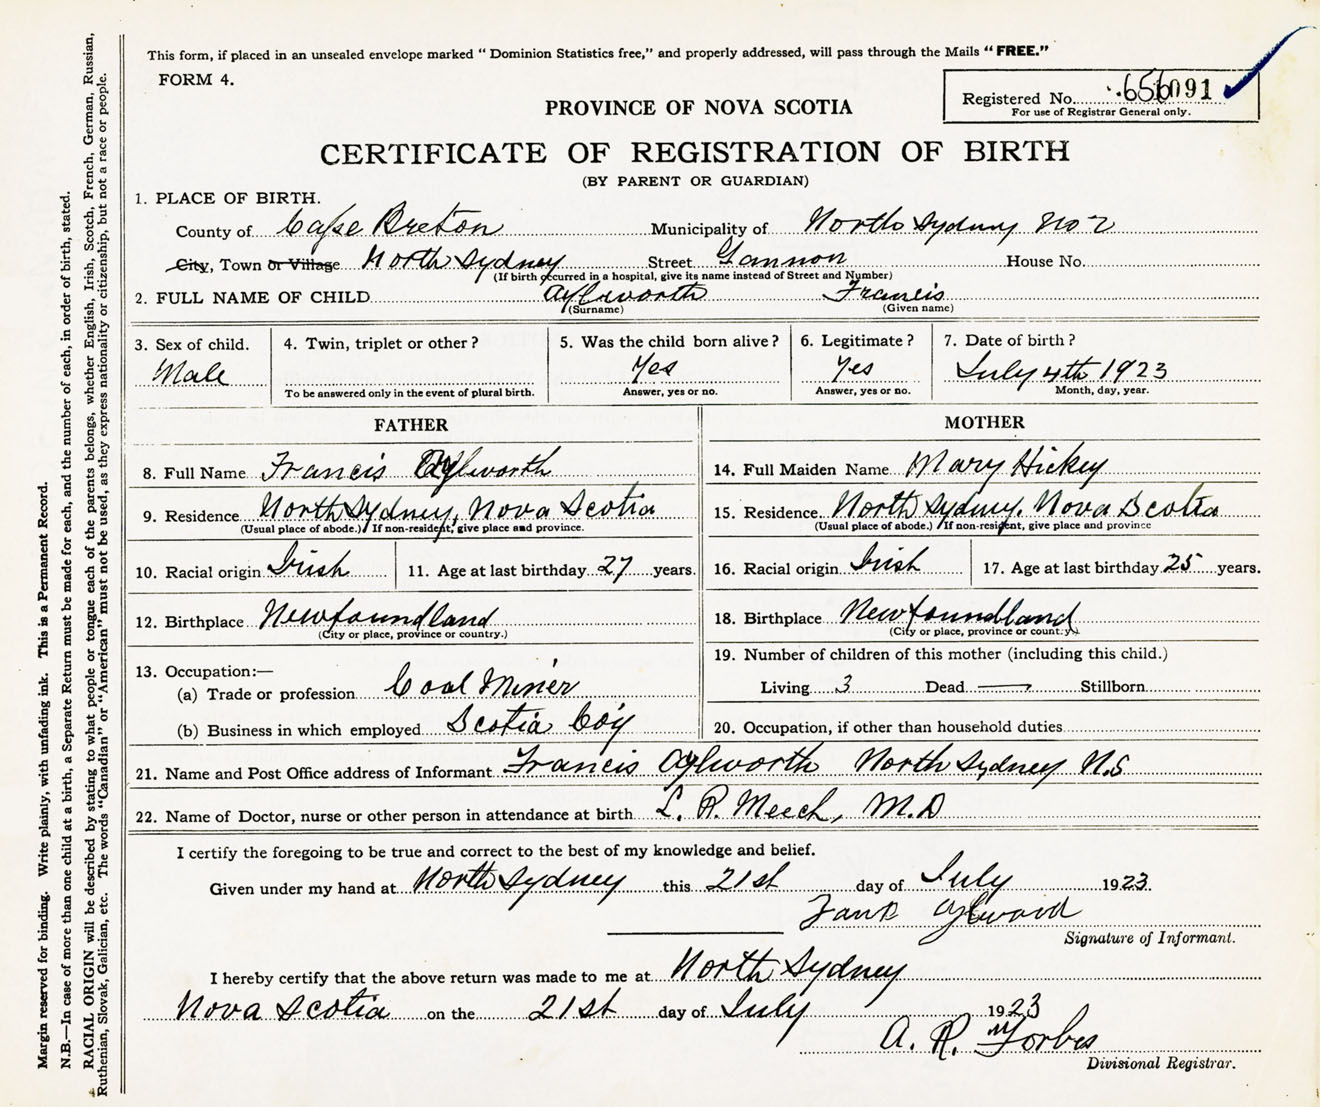 This form, if placed in an unsealed envelope marked “Dominion Statistics free,” and properly addressed, will pass through the Mails “FREE.”
FORM 4.
Registered No. 656091
For use of Registrar General only.
PROVINCE OF NOVA SCOTIA
CERTIFICATE OF REGISTRATION OF BIRTH
(BY PARENT OR GUARDIAN)
1. PLACE OF BIRTH.
County of Cape Breton Municipality of North Sydney No 2
City, Town or Village North Sydney Street Gannon House No.
(If birth occurred in a hospital, give its name instead of Street and Number)
2. FULL NAME OF CHILD Aylworth Francis
(Surname) (Given name)
3. Sex of child. 4. Twin, triplet or other? 5. Was the child born alive? 6. Legitimate? 7. Date of birth?
Male Yes Yes July 4th 1923
To be answered only in the event of plural birth. Answer, yes or no. Answer, yes or no. Month, day, year.
FATHER MOTHER
8. Full Name Francis Aylworth 14. Full Maiden Name Mary Hickey
9. Residence North Sydney, Nova Scotia 15. Residence North Sydney, Nova Scotia
(Usual place of abode.) If non-resident, give place and province. (Usual place of abode.) If non-resident, give place and province
10. Racial origin Irish 11. Age at last birthday 27 years. 16. Racial origin Irish 17. Age at last birthday 25 years.
12. Birthplace Newfoundland 18. Birthplace Newfoundland
(City or place, province or country.) (City or place, province or country.)
13. Occupation:— 19. Number of children of this mother (including this child.)
(a) Trade or profession Coal Miner Living 3 Dead — Stillborn
(b) Business in which employed Scotia Coy 20. Occupation, if other than household duties
21. Name and Post Office address of Informant Francis Aylworth North Sydney N.S
22. Name of Doctor, nurse or other person in attendance at birth L. R. Meech, M.D
I certify the foregoing to be true and correct to the best of my knowledge and belief.
Given under my hand at North Sydney this 21st day of July 1923.
Frank Aylward
Signature of Informant.
I hereby certify that the above return was made to me at North Sydney
Nova Scotia on the 21st day of July 1923
A. R. Forbes
Divisional Registrar.
Margin reserved for binding. Write plainly, with unfading ink. This is a Permanent Record.
N.B.—In case of more than one child at a birth, a Separate Return must be made for each, and the number of each, in order of birth, stated.
RACIAL ORIGIN will be described by stating to what people or tongue each of the parents belongs, whether English, Irish, Scotch, French, German, Russian,
Ruthenian, Slovak, Galician, etc. The words “Canadian” or “American” must not be used, as they express nationality or citizenship, but not a race or people.